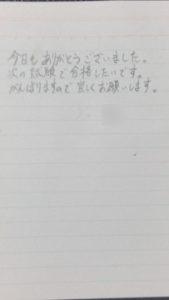 今日もありがとうございました。
次の試験で合格したいです。
がんばりますので宜しくお願いします。